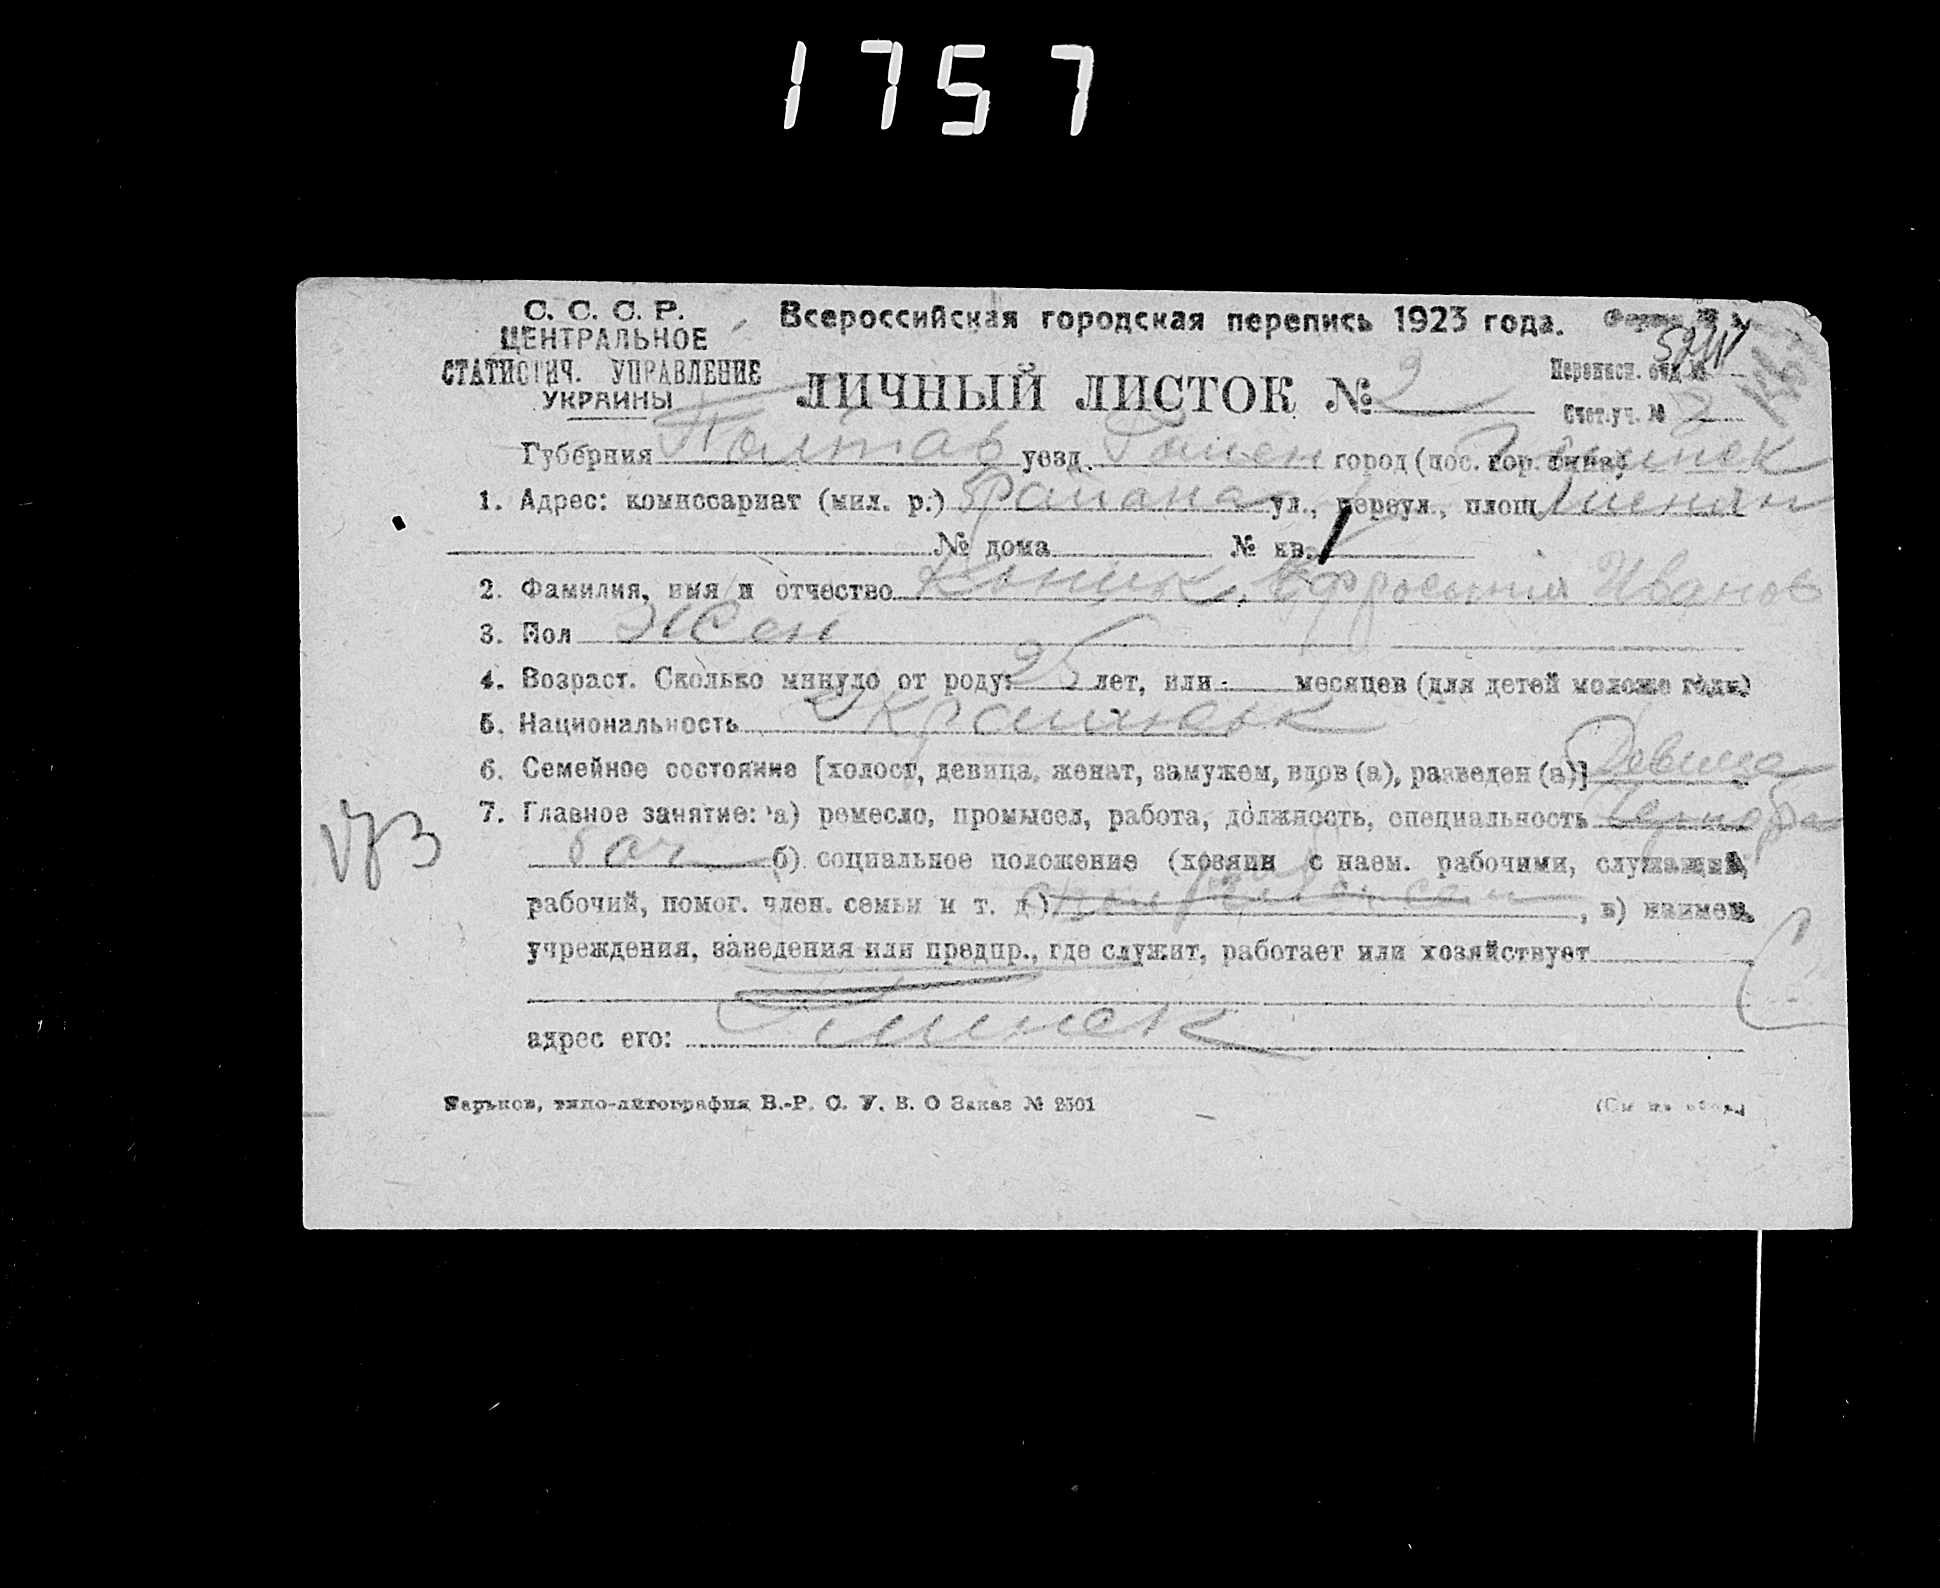 1757
С. С. С. Р.
ЦЕНТРАЛЬНОЕ
СТАТИСТИЧ. УПРАВЛЕНИЕ
УКРАИНЫ
Всероссийская городская перепись 1923 года.
Переписн. отд. №
ЛИЧНЫЙ ЛИСТОК № 2
Счет.уч. №
Губерния Полтав уезд Ромен город (пос. гор. типа)
1. Адрес: комиссариат (мил. р.) района ул., переул., площ.
№ дома № кв.
2. Фамилия, имя и отчество Ефросыния Иванов
3. Пол Жен
4. Возраст. Сколько минуло от роду: лет, или месяцев (для детей моложе года)
5. Национальность
6. Семейное состояние [холост, девица, женат, замужем, вдов (а), разведен (а)] Девица
7. Главное занятие: а) ремесло, промысел, работа, должность, специальность Чернора
боч б) социальное положение (хозяин с наем. рабочими, служащий,
рабочий, помог. член. семьи и т. д.) , в) наимен.
учреждения, заведения или предпр., где служит, работает или хозяйствует
адрес его: Глинск
Харьков, типо-литография В.-Р. С. У. В. О Заказ № 2501